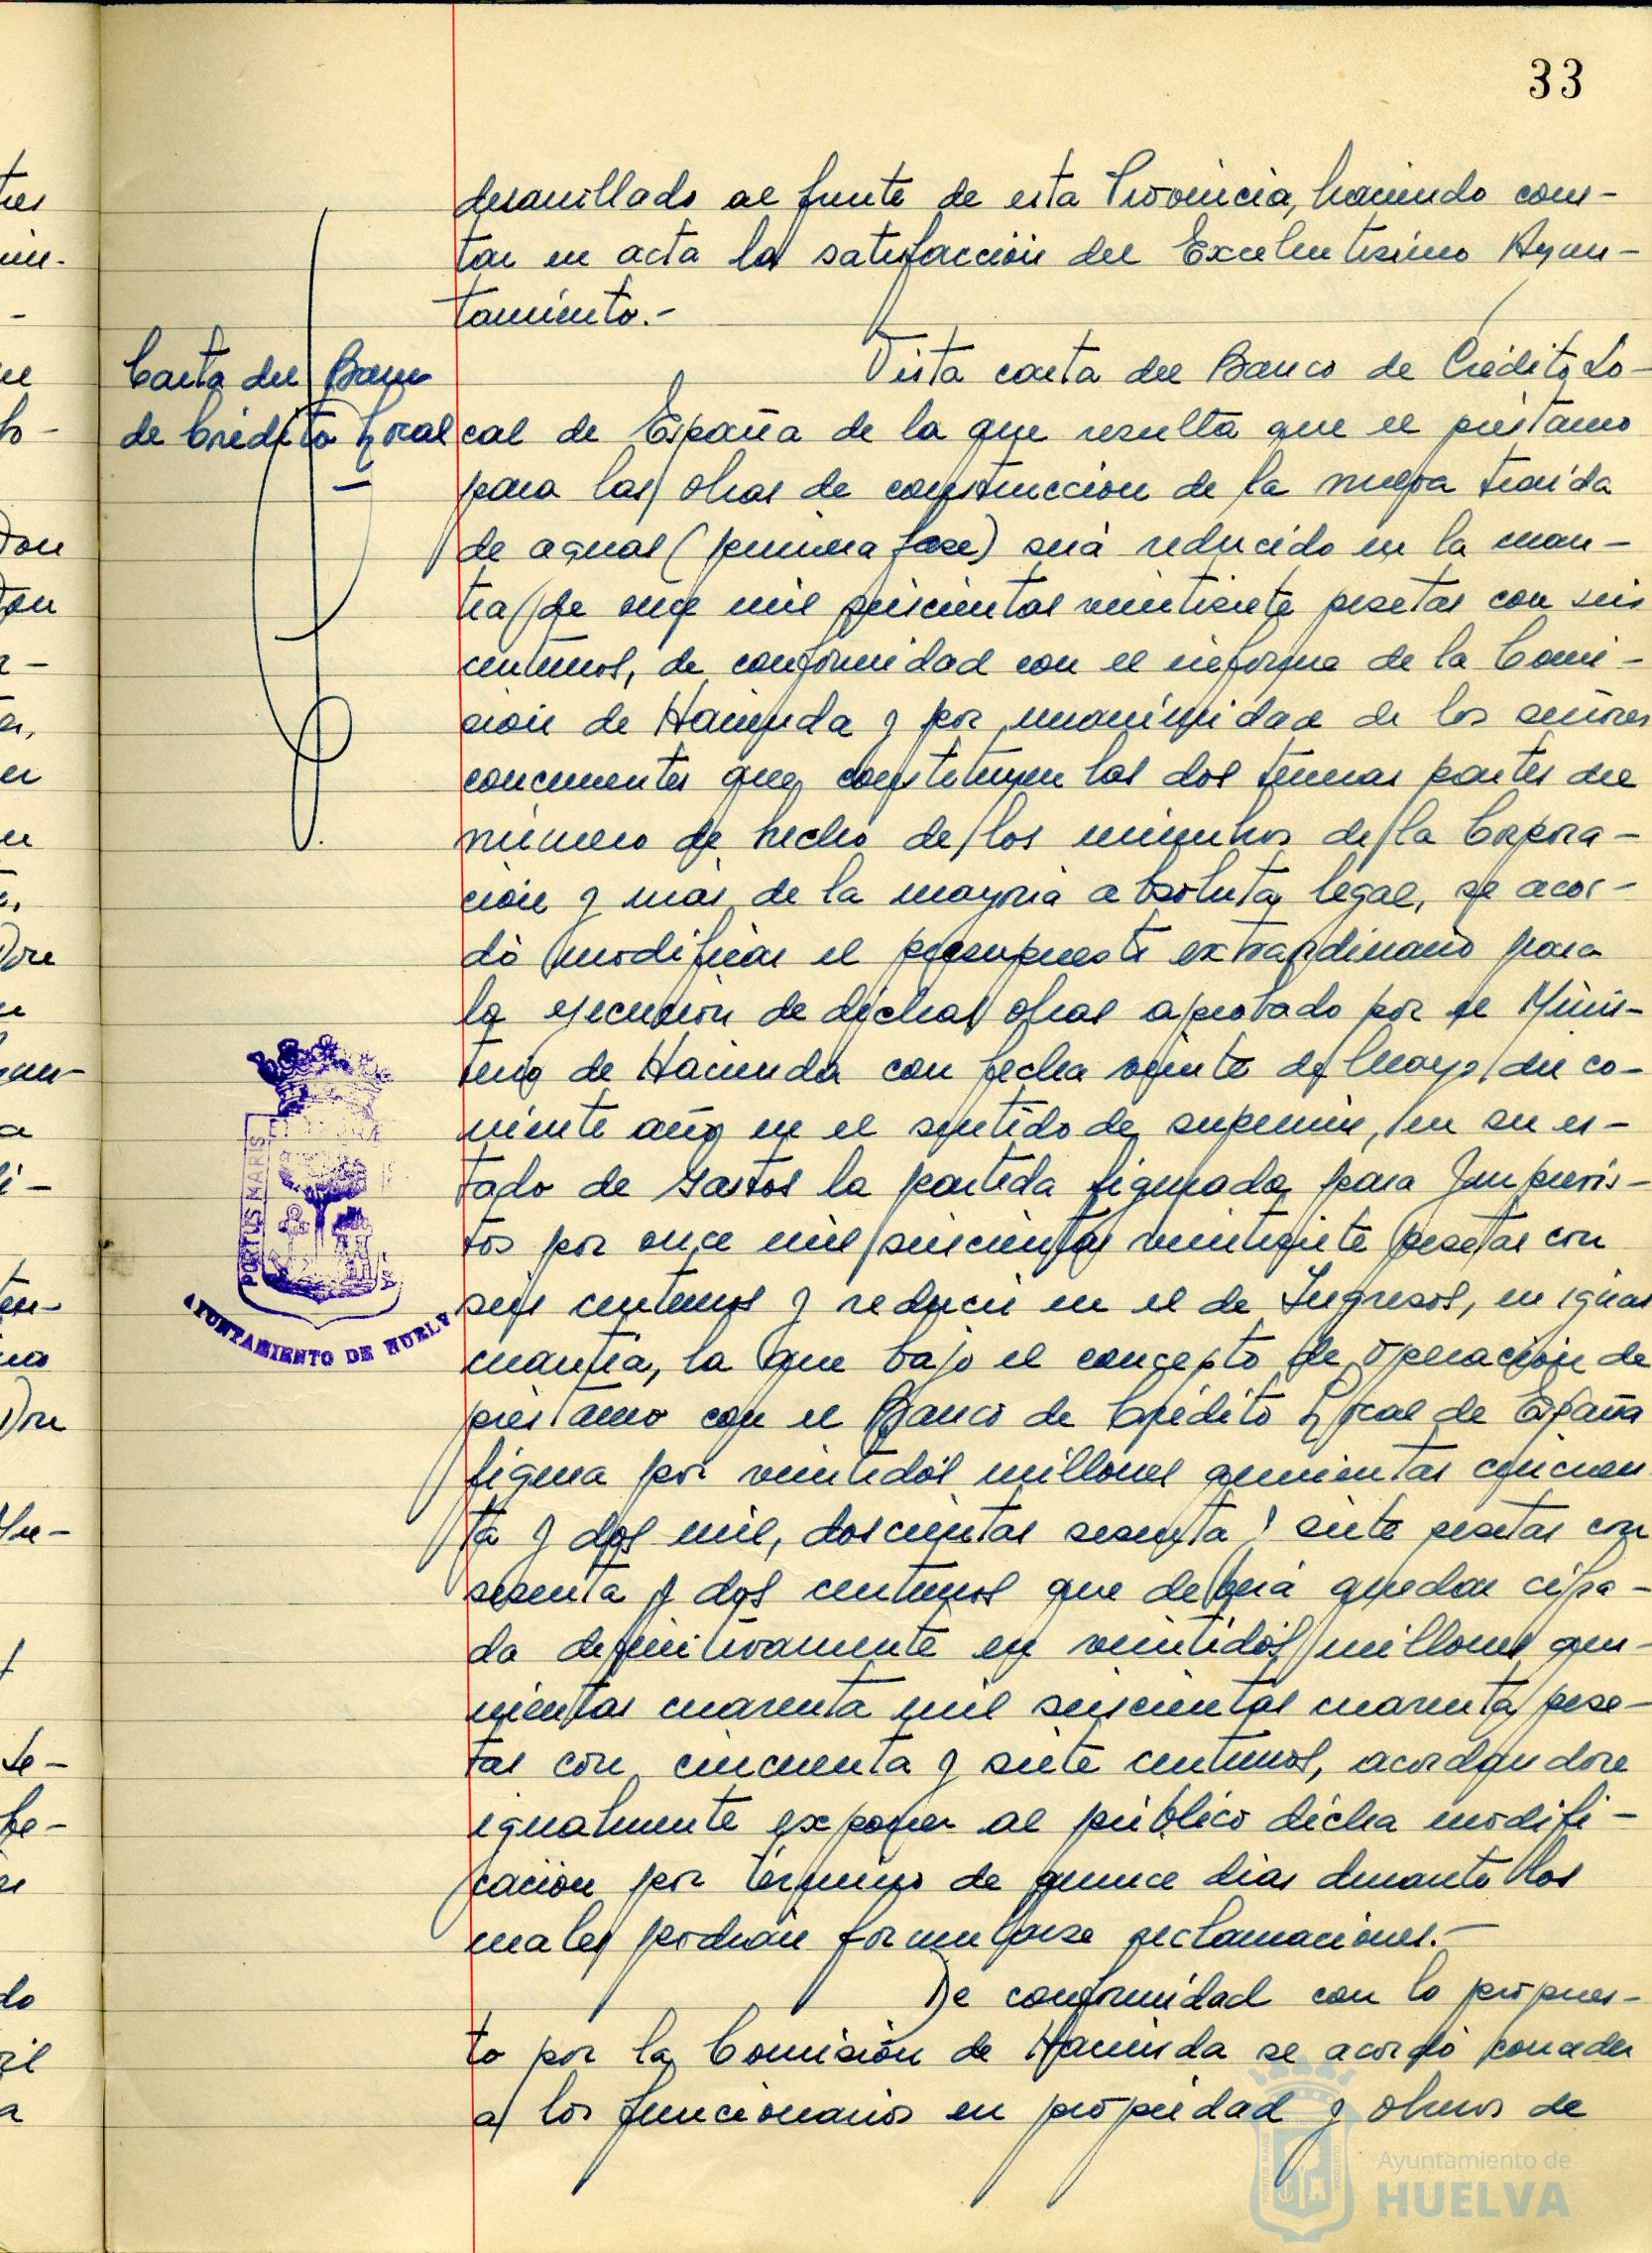 33
desarrollado al frente de esta Provincia, haciendo cons-
tar en acta la satisfacción del Excelentísimo Ayun-
tamiento.-
Carta del Banco
de Crédito Local
Vista carta del Banco de Crédito Lo-
cal de España de la que resulta que el préstamo
para las obras de construcción de la nueva traída
de aguas (primera fase) será reducido en la cuan-
tía de once mil seiscientas veintisiete pesetas con seis
centimos, de conformidad con el informe de la Comi-
sión de Hacienda y por unanimidad de los señores
concurrentes que constituyen las dos terceras partes del
número de hecho de los miembros de la Corpora-
ción y más de la mayoría absoluta legal, se acor-
dó modificar el presupuesto extraordinario para
la ejecución de dichas obras aprobado por el Minis-
terio de Hacienda con fecha veinte de Mayo del co-
rriente año en el sentido de suprimir, en su es-
tado de Gastos la partida figurada para Imprevis-
tos por once mil seiscientas veintisiete pesetas con
seis centimos y reducir en el de Ingresos, en igual
cuantía, la que bajo el concepto de operación de
préstamo con el Banco de Crédito Local de España
figura por veintidós millones quinientas cincuen
ta y dos mil, doscientas sesenta y siete pesetas con
sesenta y dos centimos que deberá quedar cifra-
da definitivamente en veintidós millones qui-
nientas cuarenta mil seiscientas cuarenta pese-
tas con cincuenta y siete centimos, acordandose
igualmente exponer al público dicha modifi-
cación por término de quince dias durante los
cuales podrán formularse reclamaciones.-
De conformidad con lo propues-
to por la Comisión de Hacienda se acordó conceder
a los funcionarios en propiedad y obreros de
PORTUS MARIS
AYUNTAMIENTO DE HUELVA
Ayuntamiento de
HUELVA